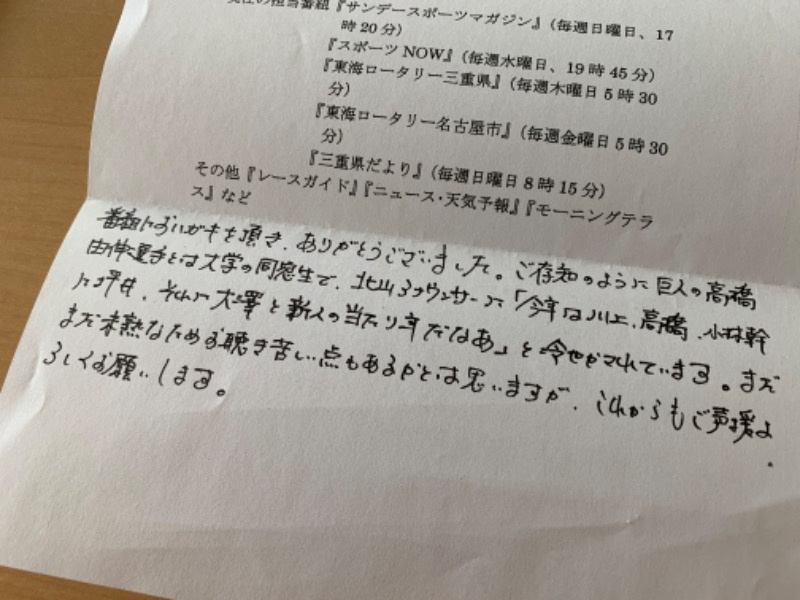 現在の担当番組『サンデースポーツマガジン』(毎週日曜日、17
時20分)
『スポーツNOW』(毎週木曜日、19時45分)
『東海ロータリー三重県』(毎週木曜日5時30
分)
『東海ロータリー名古屋市』(毎週金曜日5時30
分)
『三重県だより』(毎週日曜日8時15分)
その他『レースガイド』『ニュース・天気予報』『モーニングテラ
ス』など
番組におハガキを頂き、ありがとうございました。ご存知のように巨人の高橋
由伸選手とは大学の同窓生で、北山アナウンサーに「今年は川上、高橋、小林幹
に坪井、それに大澤と新人の当たり年だなあ」と冷やかされています。まだ
まだ未熟なためお聴き苦しい点もあるかとは思いますが、これからもご声援よ
ろしくお願いします。